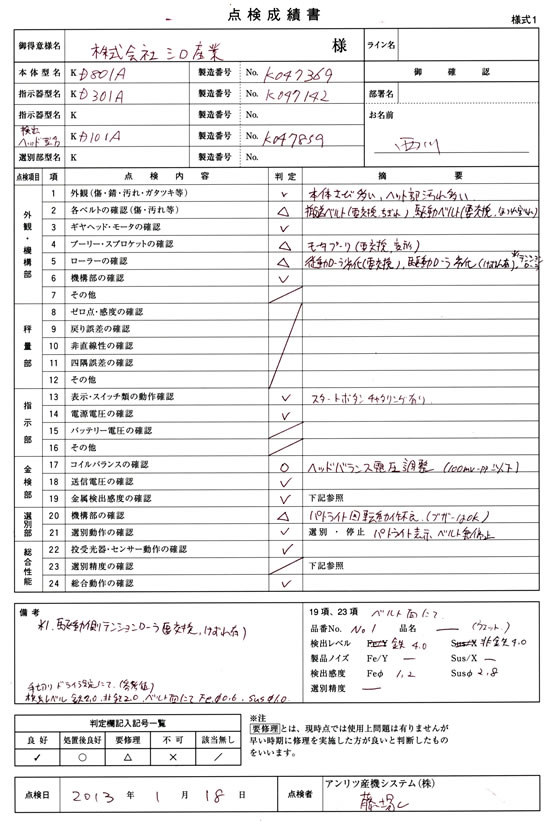 点検成績書
様式1
御得意様名 株式会社三口産業 様 ライン名
本体型名 K D801A 製造番号 No. K047369 御確認
指示器型名 K D301A 製造番号 No. K047142 部署名
指示器型名 K 製造番号 No. お名前
検出ヘッド型名 K D101A 製造番号 No. K047859 西川
選別部型名 K 製造番号 No.
点検項目 項 点検内容 判定 摘要
外観・機構部
1 外観(傷・錆・汚れ・ガタツキ等) ✓ 本体さび多い、ヘッド部汚れ多い
2 各ベルトの確認(傷・汚れ等) △ 搬送ベルト(要交換、 駆動ベルト(要交換、
3 ギヤヘッド・モータの確認 ✓
4 プーリー・スプロケットの確認 △ モータプーリ(要交換、変形)
5 ローラーの確認 △ 従動ローラ劣化(要交換)、駆動ローラ劣化(けずれ有) ※1テンションローラ
6 機構部の確認 ✓
7 その他 /
秤量部
8 ゼロ点・感度の確認
9 戻り誤差の確認
10 非直線性の確認
11 四隅誤差の確認
12 その他
指示部
13 表示・スイッチ類の動作確認 ✓ スタートボタンチャタリング有り
14 電源電圧の確認 ✓
15 バッテリー電圧の確認 /
16 その他 /
金検部
17 コイルバランスの確認 ○ ヘッドバランス電圧調整 (100mv-pp以下)
18 送信電圧の確認 ✓
19 金属検出感度の確認 ✓ 下記参照
選別部
20 機構部の確認 △ パトライト回転動作不良 (ブザーはOK)
21 選別動作の確認 ✓ 選別・停止 パトライト表示、ベルト無停止
総合性能
22 投受光器・センサー動作の確認 ✓
23 選別精度の確認 / 下記参照
24 総合動作の確認 ✓
備考
※1. 駆動側テンションローラ要交換、(けずれ有)
手切りドライ設定にて、(参考値)
検出レベル 鉄2.0、非鉄2.0、ベルト面にて Feφ0.6、Susφ1.0
19項、23項 ベルト面にて
品番No. No1 品名 ― (ウェット)
検出レベル Fe/Y 鉄4.0 Sus/X 非鉄4.0
製品ノイズ Fe/Y ― Sus/X ―
検出感度 Feφ 1.2 Susφ 2.8
選別精度 ―
判定欄記入記号一覧
良好 処置後良好 要修理 不可 該当無し
✓ ○ △ × /
※注
要修理とは、現時点では使用上問題は有りませんが
早い時期に修理を実施した方が良いと判断したもの
をいいます。
点検日 2013年1月18日 点検者 アンリツ産機システム(株)
藤場